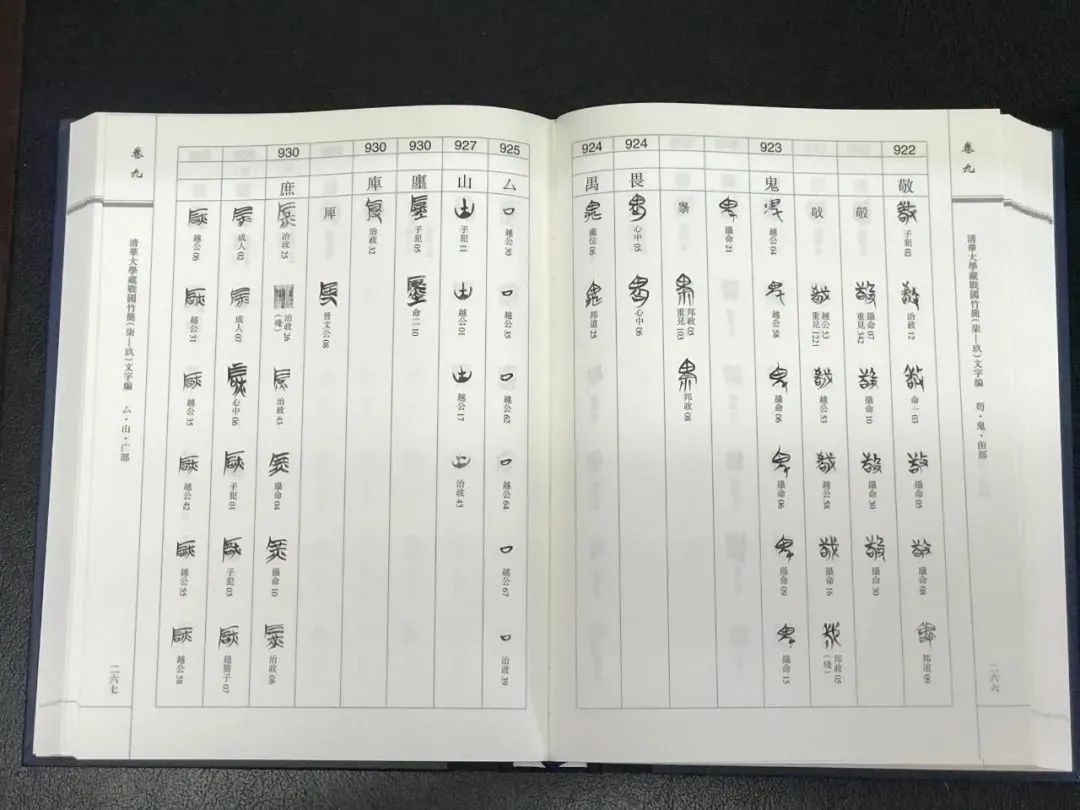 卷九
清華大學藏戰國竹簡(柒—玖)文字編 苟·鬼·甶部
二六六
922
敬
子犯 02
治政 12
命一 03
攝命 05
攝命 08
邦道 09
攝命 07
重見 342
攝命 10
攝命 30
攝命 30
越公 53
重見 1221
越公 53
越公 58
攝命 16
邦政 05
(殘)
923
鬼
越公 04
越公 58
攝命 06
攝命 06
攝命 09
攝命 15
攝命 21
邦政 05
重見 103
邦政 08
924
畏
心中 05
心中 06
924
禺
處位 06
邦道 25
卷九
清華大學藏戰國竹簡(柒—玖)文字編 厶·山·广部
二六七
925
厶
越公 30
越公 35
越公 62
越公 64
越公 67
治政 39
927
山
子犯 11
越公 01
越公 17
治政 43
930
廛
子犯 05
命二 10
930
庫
治政 32
厙
晉文公 08
930
庶
治政 25
治政 26
(殘)
治政 43
攝命 04
攝命 10
治政 08
成人 02
成人 07
心中 06
子犯 01
子犯 03
趙簡子 07
越公 06
越公 31
越公 35
越公 42
越公 55
越公 58